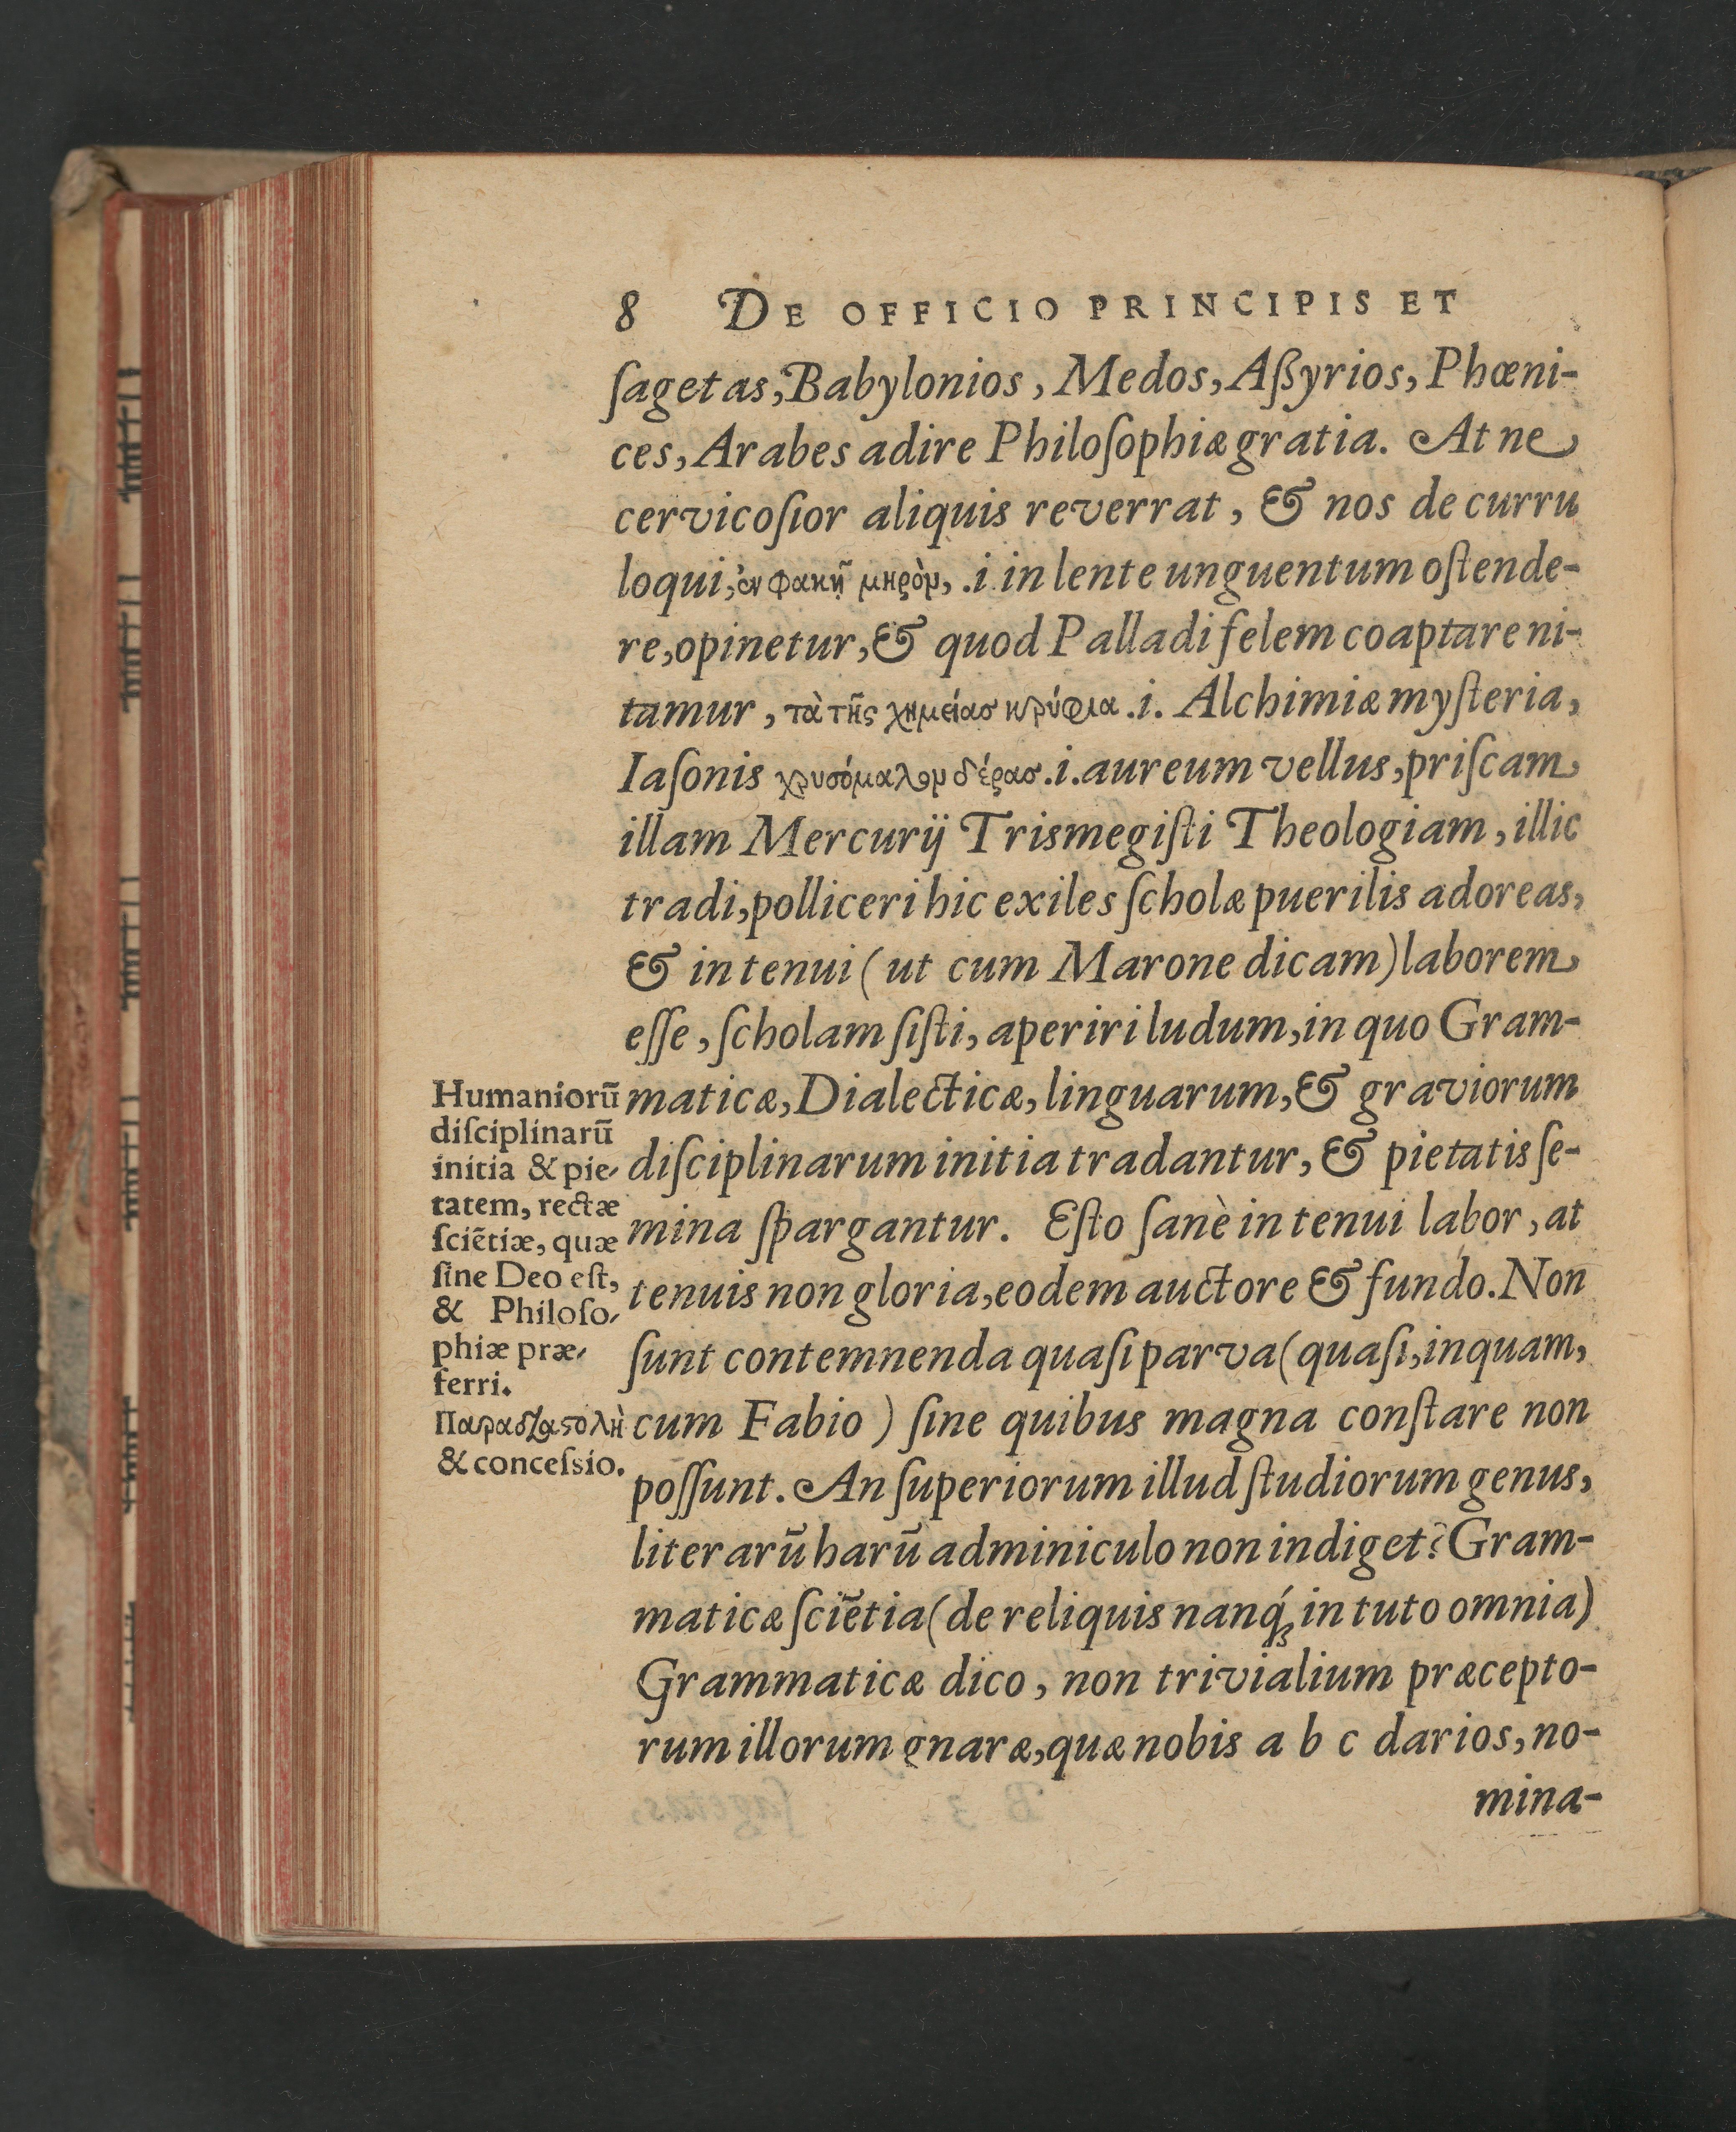 8 DE OFFICIO PRINCIPIS ET
ſagetas, Babylonios, Medos, Aßyrios, Phœni-
ces, Arabes adire Philoſophiæ gratia. At ne
cervicoſior aliquis reverrat, & nos de curru
loqui, ἐν φακῇ μηρὸν, .i. in lente unguentum oſtende-
re, opinetur, & quod Palladi felem coaptare ni-
tamur, τὰ τῆς χημείας κρύφια .i. Alchimiæ myſteria,
Iaſonis χρυσόμαλον δέρας .i. aureum vellus, priſcam
illam Mercurij Trismegiſti Theologiam, illic
tradi, polliceri hic exiles ſcholæ puerilis adoreas,
& in tenui (ut cum Marone dicam) laborem
eſſe, ſcholam ſiſti, aperiri ludum, in quo Gram-
maticæ, Dialecticæ, linguarum, & graviorum
diſciplinarum initia tradantur, & pietatis ſe-
mina ſpargantur. Eſto ſanè in tenui labor, at
tenuis non gloria, eodem auctore & fundo. Non
ſunt contemnenda quaſi parva (quaſi, inquam,
cum Fabio) ſine quibus magna conſtare non
poſſunt. An ſuperiorum illud ſtudiorum genus,
literarū harū adminiculo non indiget? Gram-
maticæ ſciētia (de reliquis nanq́ꝫ in tuto omnia)
Grammaticæ dico, non trivialium præcepto-
rum illorum gnaræ, quæ nobis a b c darios, no-
mina-
Humaniorū
diſciplinarū
initia & pie-
tatem, rectæ
ſciētiæ, quæ
ſine Deo eſt,
& Philoſo-
phiæ præ-
ferri.
Παραδιαστολὴ
& conceſsio.